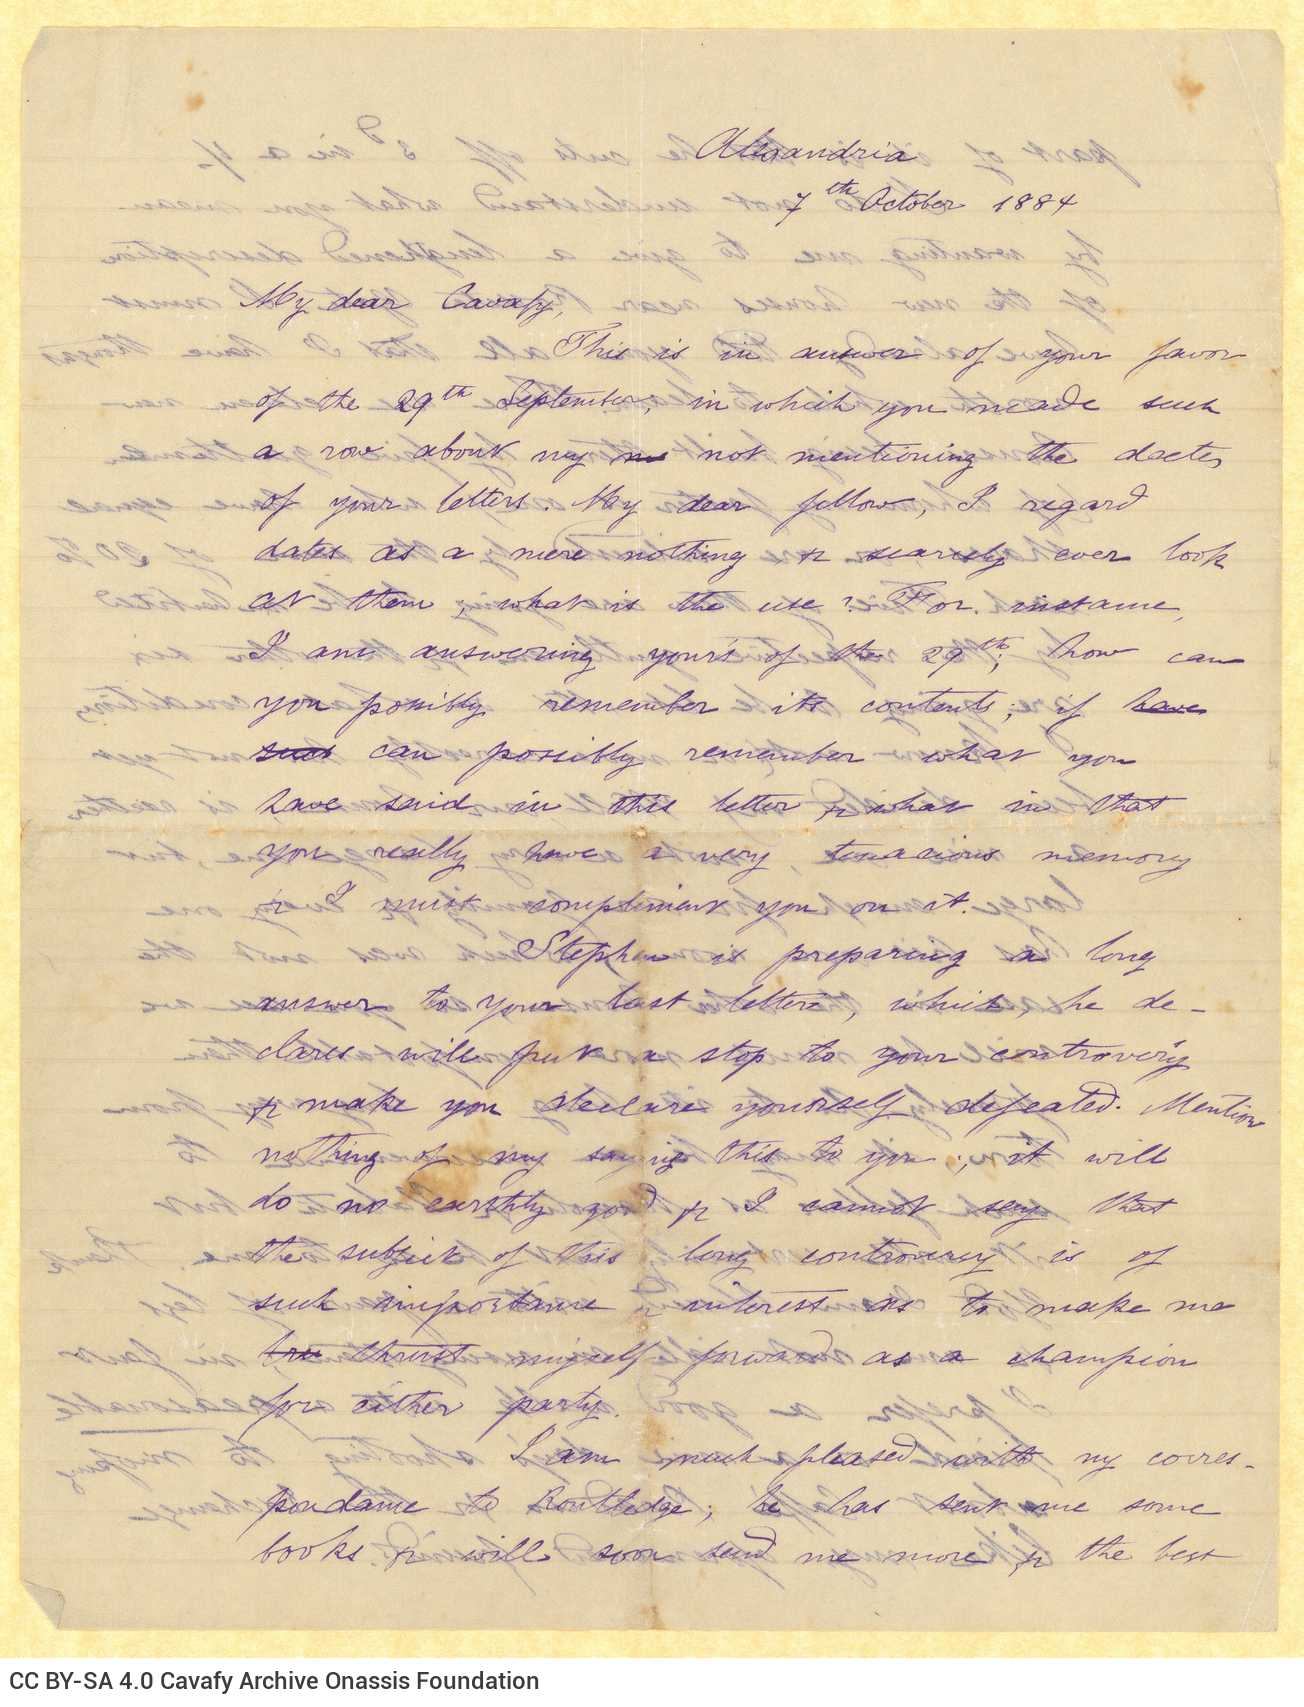 Alexandria
7th October 1884
My dear Cavafy,
This is in answer of your favor
of the 29th September, in which you made such
a row about my no not mentioning the dates
of your letters. My dear fellow, I regard
dates as a mere nothing & scarcely ever look
at them, what is the use? For instance,
I am answering your's of the 29th; how can
you possibly remember its contents; if have
such can possibly remember what you
have said in this letter & what in that
you really have a very tenacious memory
& I must compliment you on it.
Stephen is preparing a long
answer to your last letters, which he de-
clares will put a stop to your controvery
& make you declare yourself defeated. Mention
nothing of my saying this to you; it will
do no earthly good & I cannot say that
the subject of this long controversy is of
such importance & interest as to make me
tru thrust myself forward as a champion
for either party.
I am much pleased with my corres-
pondance to Routledge; he has sent me some
books & will soon send me more & the best
CC BY-SA 4.0 Cavafy Archive Onassis Foundation